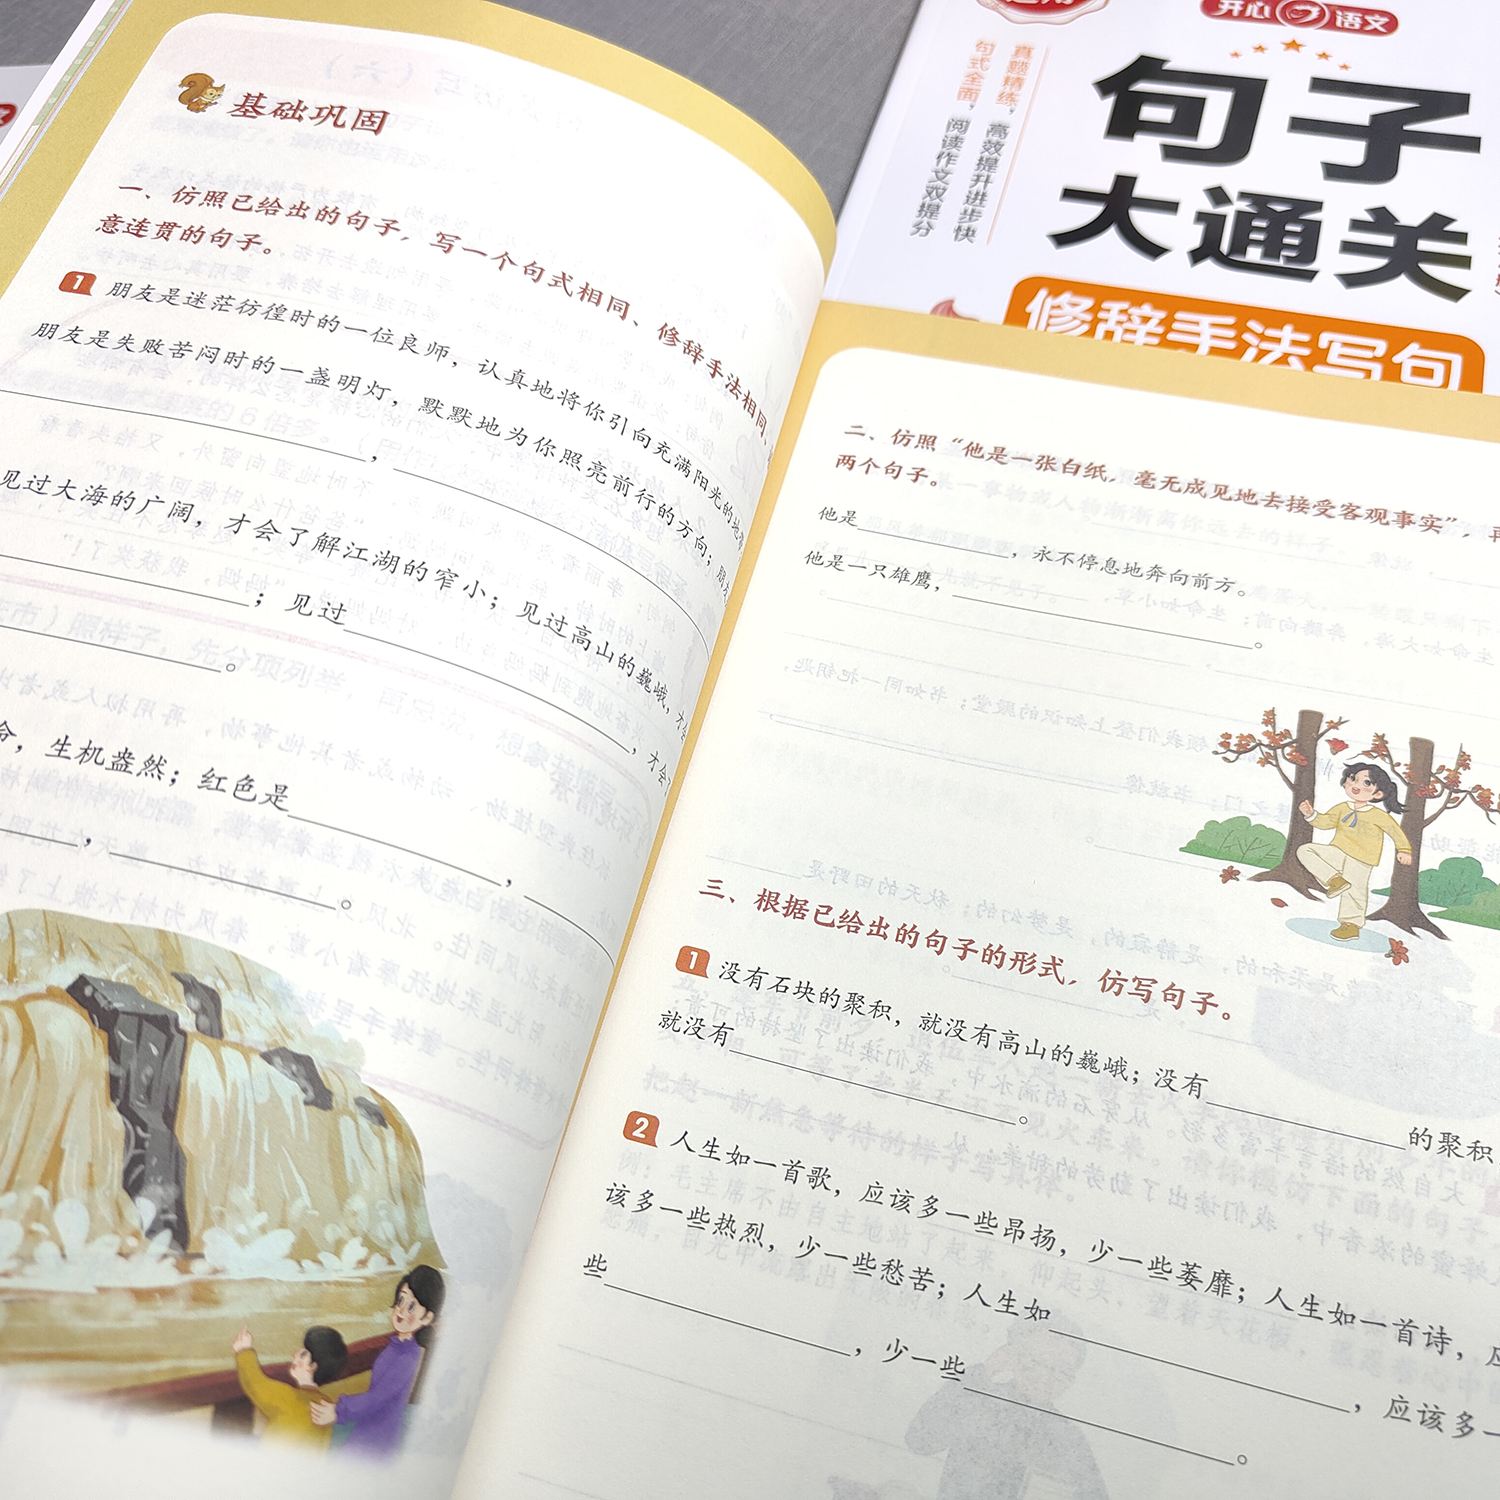 基础巩固
一、仿照已给出的句子，写一个句式相同、修辞手法相同、
意连贯的句子。
1 朋友是迷茫彷徨时的一位良师，认真地将你引向充满阳光的地
朋友是失败苦闷时的一盏明灯，默默地为你照亮前行的方向；朋
，
见过大海的广阔，才会了解江湖的窄小；见过高山的巍峨，才会
；见过 ，才会
。
命，生机盎然；红色是 ，
， 。
开心 语文
真题精练，高效提升进步快
句式全面，阅读作文双提分
句子
大通关
修辞手法写句
二、仿照“他是一张白纸，毫无成见地去接受客观事实”，再
两个句子。
他是 ，永不停息地奔向前方。
他是一只雄鹰， 。
三、根据已给出的句子的形式，仿写句子。
1 没有石块的聚积，就没有高山的巍峨；没有 的聚积
就没有 。
2 人生如一首歌，应该多一些昂扬，少一些萎靡；人生如一首诗，应
该多一些热烈，少一些愁苦；人生如 ，应该多一
些 ，少一些 。